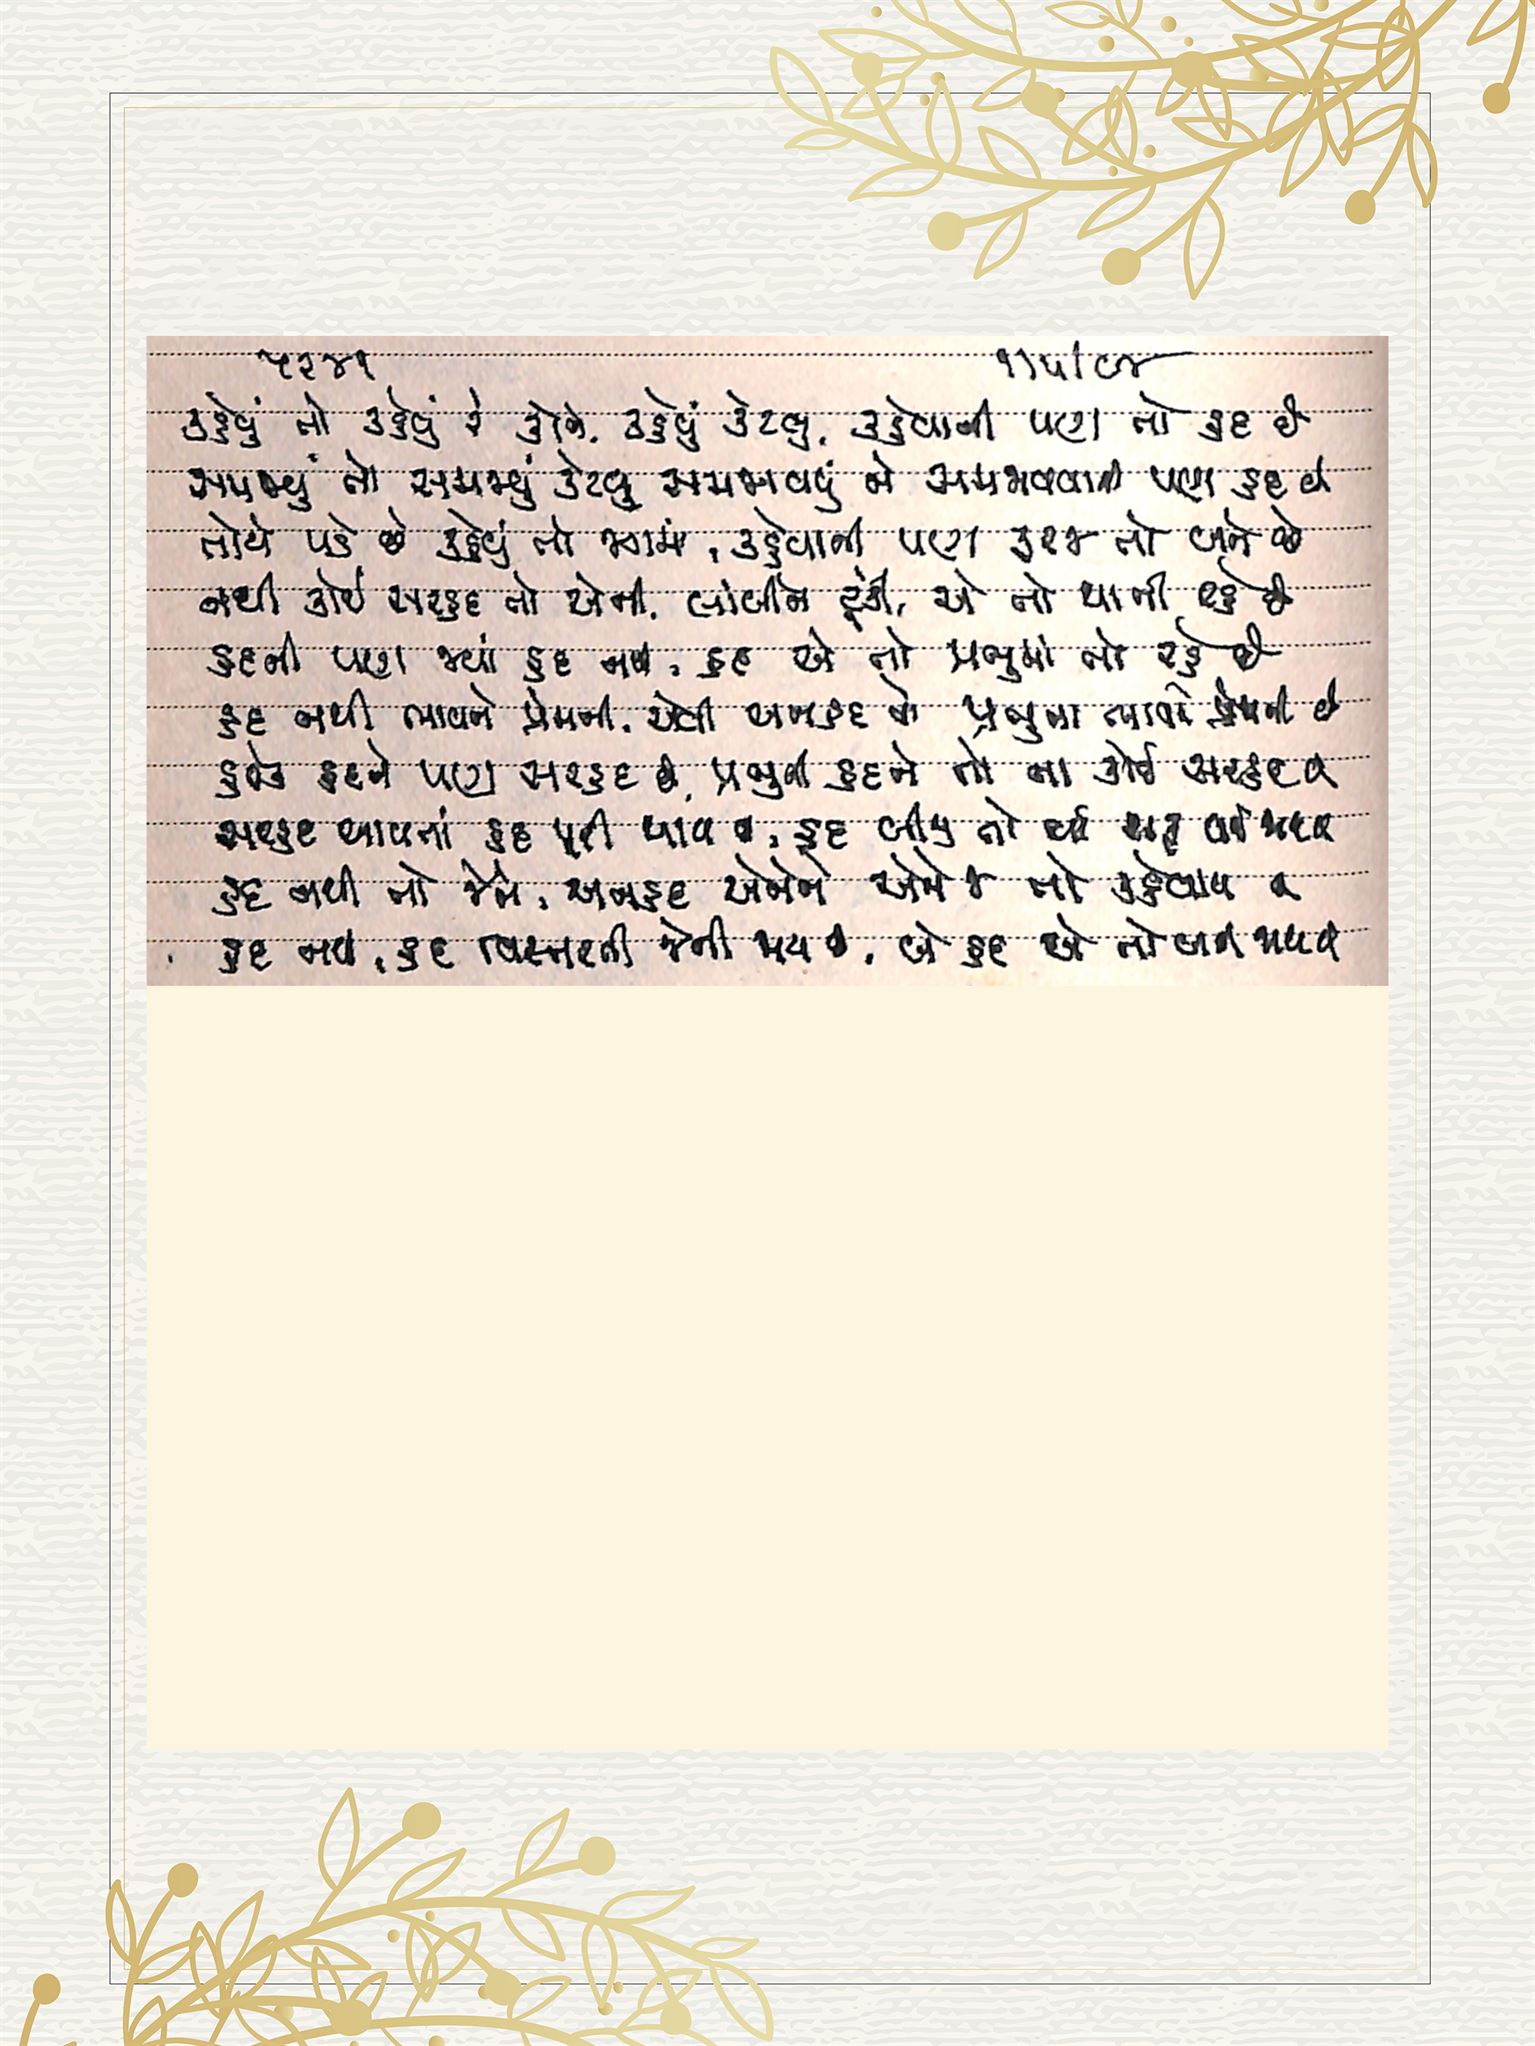 ૫૨૪૧ ૧/૫/૯૪
કહેવું તો કહેવું રે કોને, કહેવું કેટલું, કહેવાની પણ તો હદ છે
સમજવું તો સમજવું કેટલું સમજાવવું ને સમજાવવાની પણ હદ છે
તોયે પડે છે કહેવું તો જગમાં, કહેવાની પણ ફરજ તો બને છે
નથી કોઈ સરહદ તો એની, લાંબીને ટૂંકી, એ તો થાતી રહે છે
હદની પણ જ્યાં હદ નથી, હદ એ તો પ્રભુમાં તો રહે છે
હદ નથી ભાવને પ્રેમની, એવી અનહદ તો પ્રભુના ભાવને પ્રેમની છે
હરેક હદને પણ સરહદ છે, પ્રભુની હદને તો ના કોઈ સરહદ છે
સરહદ આવતાં હદ પૂરી થાય છે, હદ બીજી તો શરૂ
હદ નથી તો જેને, અનહદ એને એમ જ તો કહેવાય છે
હદ નથી, હદ વિસ્તરતી જેની જાય છે, બેહદ એ તો બની જાય છે